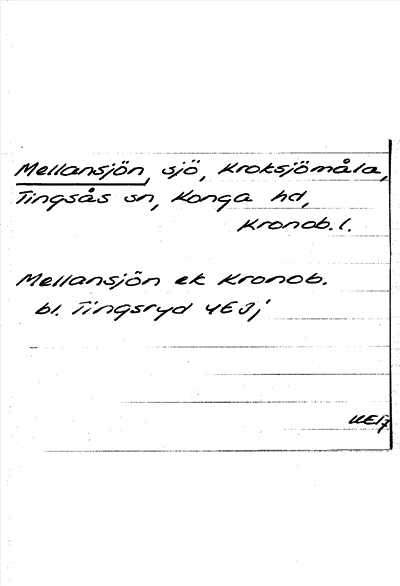 Mellansjön, sjö, Kroksjömåla,
Tingsås sn, Konga hd,
Kronob. l.
Mellansjön ek Kronob.
bl. Tingsryd 4E3j